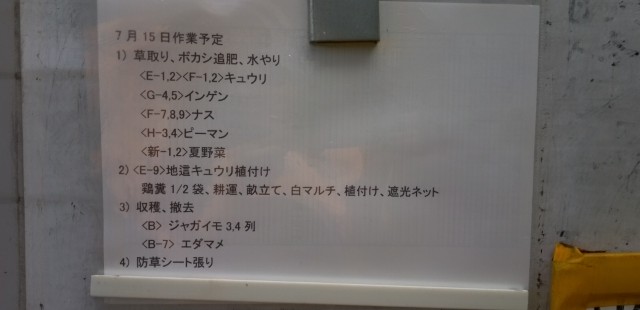 7月15日作業予定
1) 草取り、ボカシ追肥、水やり
<E-1,2><F-1,2>キュウリ
<G-4,5>インゲン
<F-7,8,9>ナス
<H-3,4>ピーマン
<新-1,2>夏野菜
2) <E-9>地這キュウリ植付け
鶏糞 1/2 袋、耕運、畝立て、白マルチ、植付け、遮光ネット
3) 収穫、撤去
<B> ジャガイモ 3,4 列
<B-7> エダマメ
4) 防草シート張り